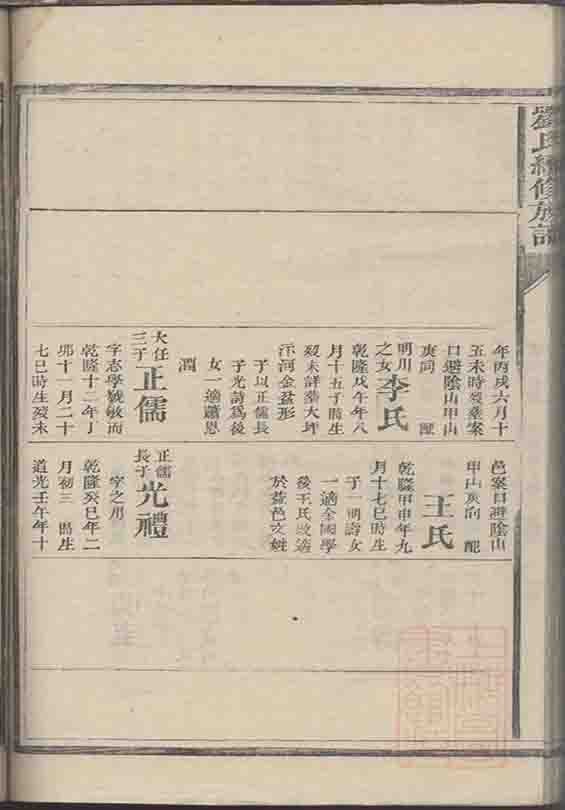 劉氏續修族譜
年丙戌六月十
五未時歿葬案
口避陰山甲山
庚向 配
李氏
明川
之女
乾隆戊午年八
月十五子時生
歿未詳葬大坪
泙河金盆形
子以正儒長
子光詩為後
女一適蕭恩
潤
大任
三子
正儒
字志學號敏而
乾隆十二年丁
卯十一月二十
七巳時生歿未
邑案口避陰山
甲山庚向 配
王氏
乾隆甲申年九
月十七巳時生
子一明壽女
一適全國學
後王氏改適
於益邑文姓
正儒
長子
光禮
字之用
乾隆癸巳年二
月初三 時生
道光壬午年十